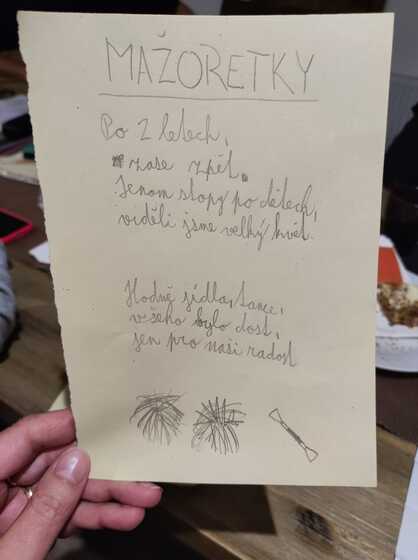 MAŽORETKY
Po 2 letech,
zase zpět.
Jenom stopy po dětech,
viděli jsme velký květ.
Hodně jídla, tance,
všeho bylo dost,
jen pro naši radost